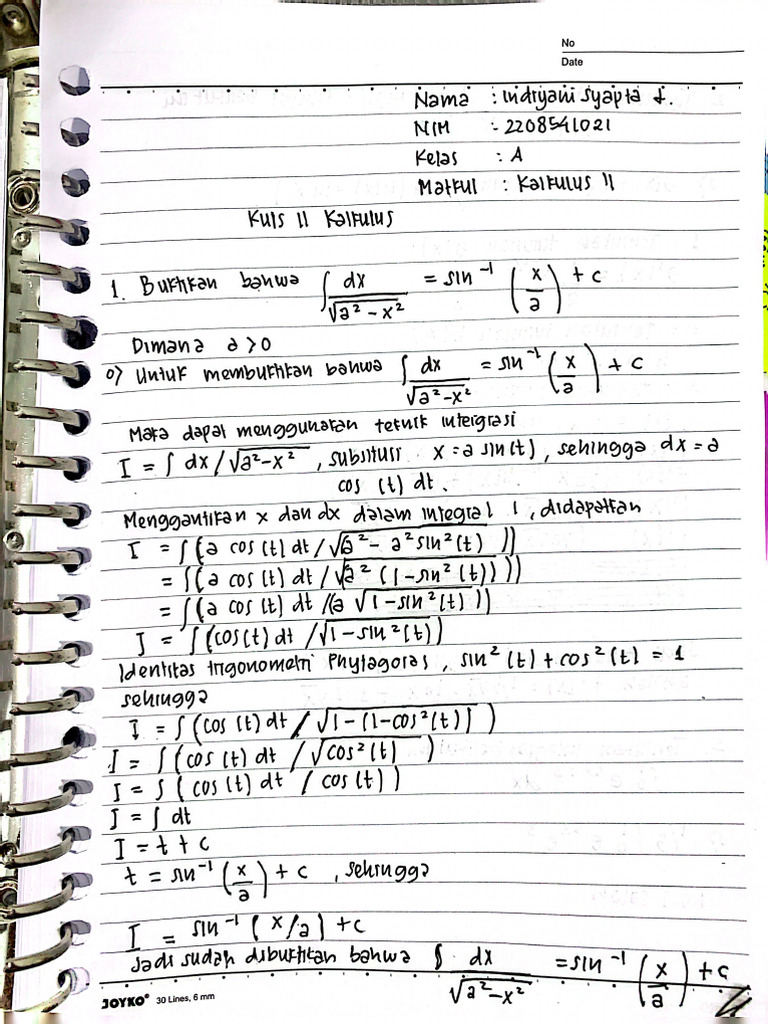 No
Date
Nama : Indriyani Syapta d.
NIM : 2208541021
Kelas : A
Matkul : Kalkulus II
Kuis II Kalkulus
1. Buktikan bahwa ∫ dx / √a² – x² = sin⁻¹ (x/a) + c
Dimana a > 0
o) Untuk membuktikan bahwa ∫ dx / √a²–x² = sin⁻¹ (x/a) + c
Maka dapat menggunakan teknik intergrasi
I = ∫ dx / √a²–x² , substitusi x = a sin(t) , sehingga dx = a
cos (t) dt.
Menggantikan x dan dx dalam integral I , didapatkan
I = ∫ (a cos (t) dt / √a² – a² sin² (t) ))
= ∫ (a cos (t) dt / √a² (1 – sin² (t))))
= ∫ (a cos (t) dt /(a √1 – sin² (t) ))
I = ∫ (cos(t) dt / √1 – sin² (t))
Identitas trigonometri Phytagoras , sin² (t) + cos² (t) = 1
sehingga
I = ∫ (cos (t) dt / √1 – (1–cos² (t)) )
I = ∫ (cos (t) dt / √cos² (t) )
I = ∫ (cos (t) dt / cos (t))
I = ∫ dt
I = t + c
t = sin⁻¹ (x/a) + c , sehingga
I = sin⁻¹ (x/a) + c
Jadi sudah dibuktikan bahwa ∫ dx / √a²–x² = sin⁻¹ (x/a) + c
JOYKO® 30 Lines, 6 mm